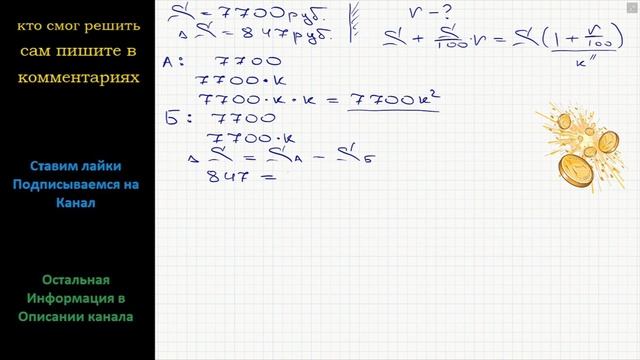 кто смог решить
сам пишите в
комментариях
Ставим лайки
Подписываемся на
Канал
Остальная
Информация в
Описании канала
S = 7700 руб.
ΔS = 847 руб.
r - ?
S + S/100 · r = S(1 + r/100)
к"
А: 7700
7700·к
7700·к·к = 7700к²
Б: 7700
7700·к
ΔS = SА - SБ
847 =